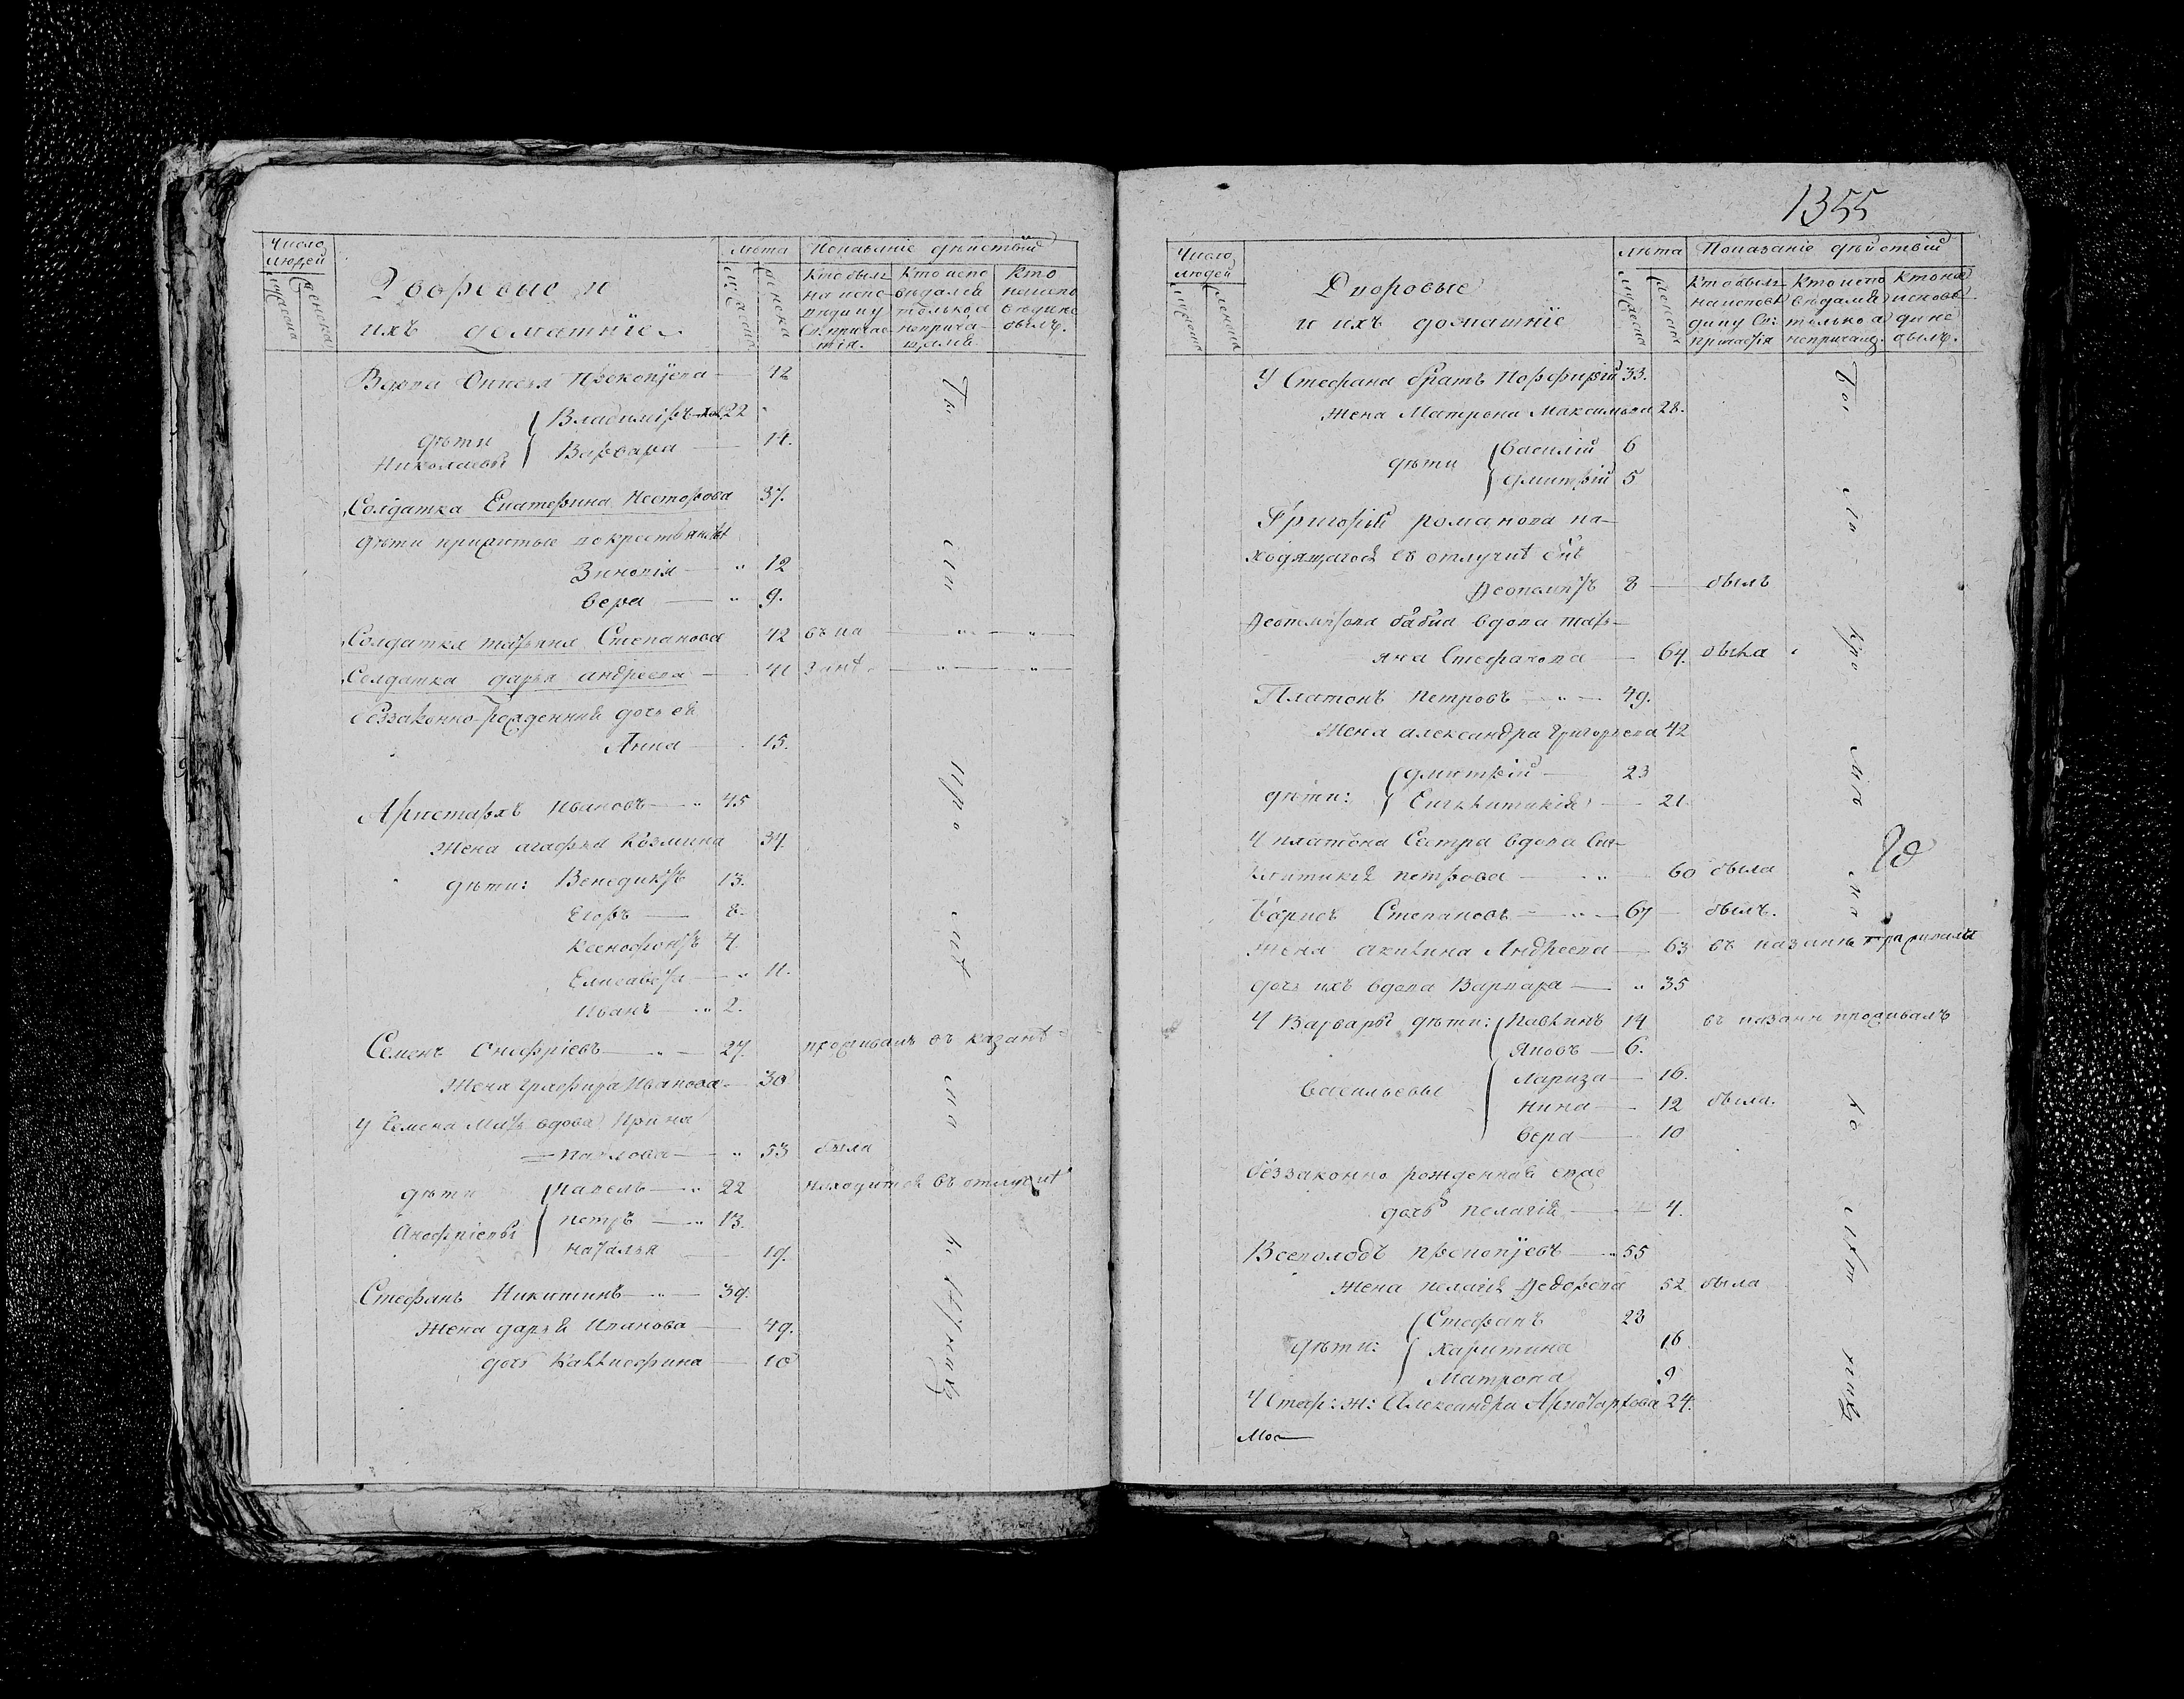 Число людей
мужеска
женска
Дворовые и
ихъ домашніе
лѣта
мужеска
женска
Показаніе дѣйствій
Кто былъ на испо-
вѣдину Св. причас-
тія.
Кто испо-
вѣдался
только а
неприча-
щался
Кто
неиспо-
вѣдине
былъ.
Вдова Прокопіева 42
дѣти Николаевы
Владиміръ 22
Варвара 14.
Солдатка Екатерина Несторова 37.
дѣти прижитые
Зиновія 12
Вера 9.
Солдатка Марина Степанова 42 въ ка
Солдатка дарья андреева 41 занѣ
беззаконно-рожденная дочь ея
Анна 15.
Аристархъ Ивановъ 45
Жена агафья Козмина 34
дѣти: Венедиктъ 13.
Егоръ 8.
Ксенофонтъ 4
Елисавета 11.
Иванъ 2.
Семенъ Онифріевъ 27. проживалъ въ казанѣ
Жена Глафира Иванова 30
У Семена Мать вдова Ирина
Павлова 53 была
дѣти Анофріевы
Павелъ 22 находится въ отлучкѣ
Петръ 13.
Наталья 19.
Стефанъ Никитинъ 39.
Жена дарья Иванова 49.
дочь Каллисфина 10
1355
Число людей
мужеска
женска
Дворовые
и ихъ домашніе
лѣта
мужеска
женска
Показаніе дѣйствій
Кто былъ
на исповѣ
дину Св:
причастія
Кто испо
вѣдался
только а
непричащ.
Кто на
исповѣ
дине
былъ.
У Стефана братъ Порфирій 33.
Жена Матрона Максимова 28.
дѣти
Василій 6
Дмитрій 5
Григорія романова на-
ходящагося въ отлучкѣ
8 былъ
бабка вдова Тать-
яна Стефанова 64. была
Платонъ Петровъ 49.
Жена александра Григорьева 42
дѣти:
Дмитрій 23
21.
У платона Сестра вдова Син-
клитикія петрова 60 была
Борисъ Степановъ 67 былъ.
Жена акилина Андреева 63 въ казани проживалы
дочь ихъ вдова Варвара 35
У Варвары дѣти: Павлинъ 14 въ казани проживалъ
Яковъ 6.
Васильевы
Лариза 16.
Нина 12 была.
Вера 10
беззаконно рожденная
дочь пелагія 4.
Всеволодъ прокопіевъ 55
Жена пелагія Ѳедорова 52 была
дѣти:
Стефанъ 23
Харитина 16
Матрона 9
У Стеф: ж: Александра Аристархова 24.